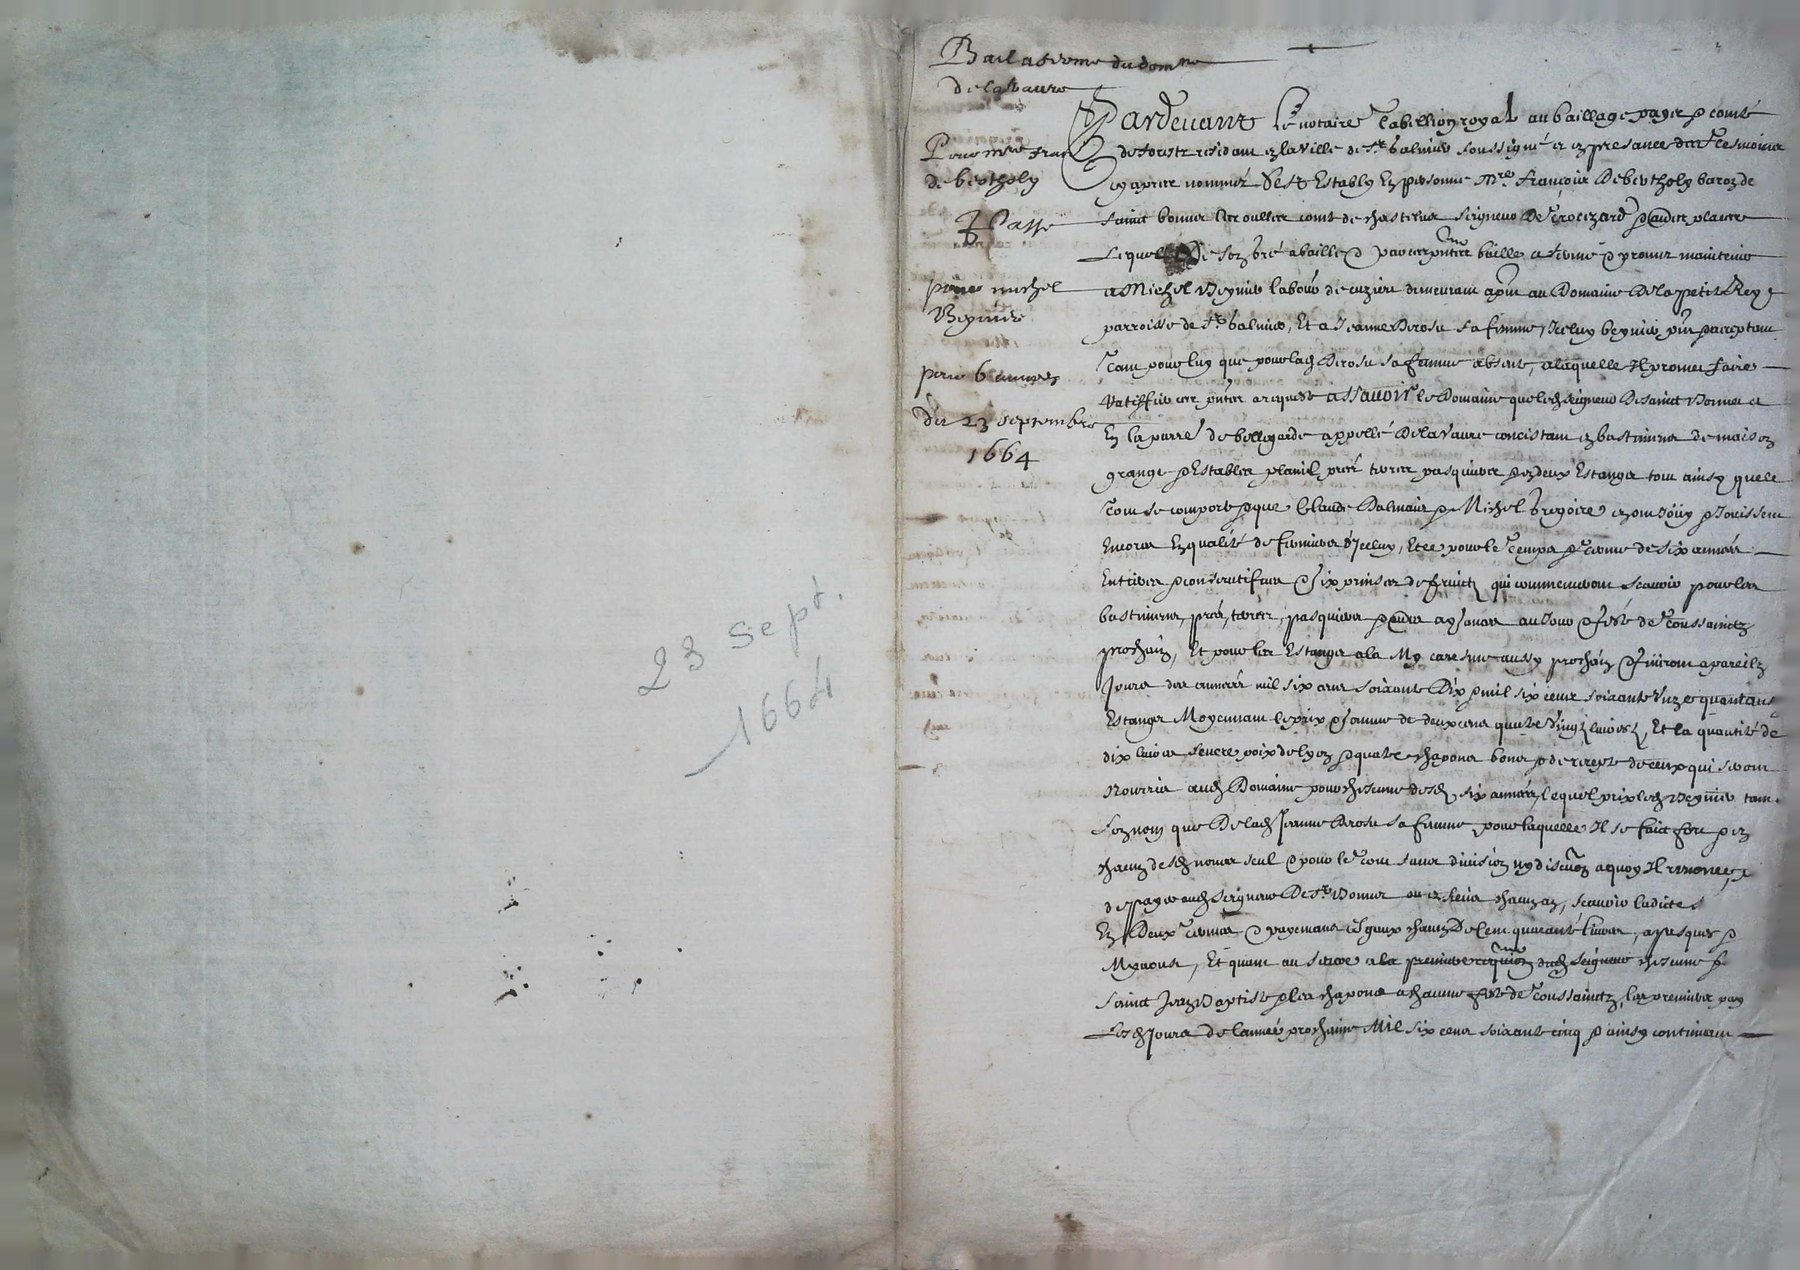 23 sept.
1664
Bail a ferme du domne
de la vaure
Pour mre Fran
de bertholy
Passé
pour michel
Beynier
pour 6 années
du 23 septembre
1664
Pardevant le notaire tabellion royal au baillage pays & comté
de forestz residant en la ville de St balmier soussigné et en presance des tesmoins
cy apres nommés s'est estably en personne Mre François de bertholy baron de
sainct bonnet les oulles comte de chastelus seigneur de & autres places
Lequel de son gré a baillé & par ces pntes baille a ferme & promet maintenir
a Michel Beynier labour de cuzieu demeurant a pnt au Domaine de la petite
parroisse de St balmier, Et a Jeanne Derosu sa femme, Icelluy beynier pnt & acceptant
tant pour luy que pour lad Derosu sa femme absente, a laquelle Il promet faire
ratiffier ces pntes a requeste assauoir le Domaine que led seigneur de sainct Bonnet a
En la parre de bellegarde appellé de la Vaure concistant en bastimens de maison
grange & Establer prés terres pasquiers & en deux Estangs tout ainsy que le
tout se comporte & que Claude Dalmais & Michel gregoire en ont Jouy & Jouissent
Encores En qualité de fermiers d'Icelluy, Et ce pour le temps & terme de six années
Entieres & consecutifues & six prinses de fruictz qui commenceront scauoir pour les
bastimens, prés, terres, pasquiers & autres aysances au Jour & feste de toussainctz
prochain, Et pour les Estangs a la My caresme aussy prochain & finiront a pareilz
Jours des années mil six cens soixante dix & mil six cens soixante unze quant aus
Estangs Moyennant le prix & somme de deux cens quatre vingtz liures, Et la quantité de
dix liures beure poix de lyon & quatre chapons bons & de recepte de ceux qui seront
nourris aud Domaine pour chascune desd six années, lequel prix led Beynier tant
son nom que de lad Jeanne Derosu sa femme pour laquelle Il se faict fort & en
chacun desd noms seul & pour le tout sans diuision ny discution a quoy Il renonce,
de payer aud seigneur de St Bonnet ou es siens chacun an, scauoir ladicte
En Deux termes & payemens esgaux chacun de Cent quarante liures, a pasques &
Myaoust, Et quant au beure a la premiere requisition dud seigneur chascune
sainct Jean Baptiste & les chapons a chacune feste de toussainctz, les premiers pay
Esd Jours de l'année prochaine Mil six cens soixante cinq & ainsy continuant